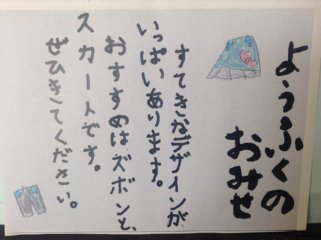 ようふくの
おみせ
すてきなデザインが、
いっぱいあります。
おすすめはズボンと、
スカートです。
ぜひきてください。